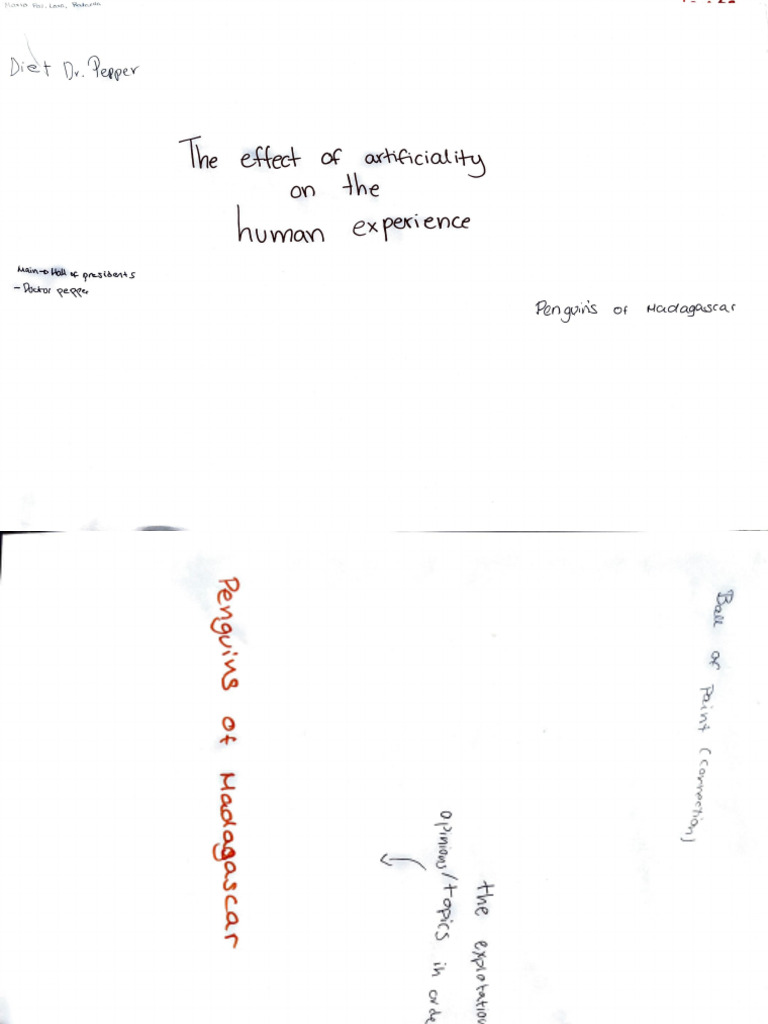 Diet Dr. Pepper
The effect of artificiality
on the
human experience
Main→Hall of presidents
- Doctor pepper
Penguin's of Madagascar
Ball of Paint (connection)
the explotation
opinions/topics in orde
Penguins of Madagascar